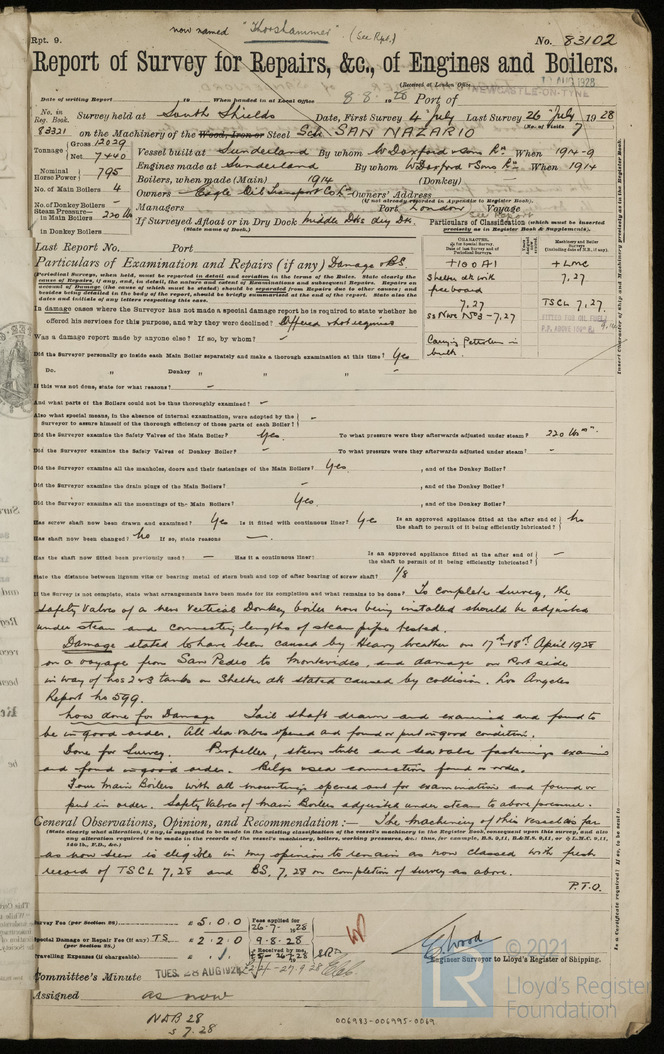 now named "Thorshammer". (See Rpt.)
Rpt. 9.
No. 83102
Report of Survey for Repairs, &c., of Engines and Boilers.
(Received at London Office
AUG 1928
NEWCASTLE-ON-TYNE
Date of writing Report 19 When handed in at Local Office 8.8.1928 Port of
No. in Reg. Book. Survey held at South Shields Date, First Survey 4 July Last Survey 26 July 1928
(No. of Visits 7)
83321 on the Machinery of the Wood, Iron or Steel Sch SAN NAZARIO
Tonnage Gross 12029 Net 7440
Vessel built at Sunderland By whom W Doxford & Sons Ld When 1914-9
Engines made at Sunderland By whom W Doxford & Sons Ld When 1914
Nominal Horse Power 795
Boilers, when made (Main) 1914 (Donkey)
No. of Main Boilers 4
Owners Eagle Oil Transport Co Ld Owners' Address
(if not already recorded in Appendix to Register Book).
No. of Donkey Boilers –
Managers Port London Voyage See Report
Steam Pressure in Main Boilers 220 lb
If Surveyed Afloat or in Dry Dock Middle Dks dry Dk.
(State name of Dock.)
in Donkey Boilers
Particulars of Classification (which must be inserted precisely as in Register Book & Supplements).
Last Report No. Port
Particulars of Examination and Repairs (if any) Damage & BS
(Periodical Surveys, when held, must be reported in detail and seriatim in the terms of the Rules. State clearly the cause of Repairs, if any, and, in detail, the nature and extent of Examinations and subsequent Repairs. Repairs on account of Damage (the cause of which must be stated) should be separated from Repairs due to other causes; and besides being detailed in the body of the report, should be briefly summarised at the end of the report. State also the dates and initials of any letters respecting this case.
+100A1
Shelter dk with
freeboard
7,27
SS Nwc No3 – 7,27
Carrying Petroleum in
bulk.
+LMC
7,27
TSCL 7,27.
FITTED FOR OIL FUEL
F.P. ABOVE 150° F.
In damage cases where the Surveyor has not made a special damage report he is required to state whether he
offered his services for this purpose, and why they were declined? Offered not required
Was a damage report made by anyone else? If so, by whom? –
Did the Surveyor personally go inside each Main Boiler separately and make a thorough examination at this time? Yes
Do. " Donkey " " " " –
If this was not done, state for what reasons? –
And what parts of the Boilers could not be thus thoroughly examined? –
Also what special means, in the absence of internal examination, were adopted by the
Surveyor to assure himself of the thorough efficiency of those parts of each Boiler? –
Did the Surveyor examine the Safety Valves of the Main Boiler? Yes. To what pressure were they afterwards adjusted under steam? 220 lbs
Did the Surveyor examine the Safety Valves of Donkey Boiler? – To what pressure were they afterwards adjusted under steam? –
Did the Surveyor examine all the manholes, doors and their fastenings of the Main Boilers? Yes, and of the Donkey Boiler?
Did the Surveyor examine the drain plugs of the Main Boilers? – , and of the Donkey Boiler?
Did the Surveyor examine all the mountings of the Main Boilers? Yes. , and of the Donkey Boiler?
Has screw shaft now been drawn and examined? Yes Is it fitted with continuous liner? Yes Is an approved appliance fitted at the after end of the shaft to permit of it being efficiently lubricated? No
Has shaft now been changed? No If so, state reasons –
Has the shaft now fitted been previously used? – Has it a continuous liner? Is an approved appliance fitted at the after end of the shaft to permit of it being efficiently lubricated? –
State the distance between lignum vitæ or bearing metal of stern bush and top of after bearing of screw shaft? 1/8
If the Survey is not complete, state what arrangements have been made for its completion and what remains to be done? To complete survey, the
safety valves of a new Vertical Donkey boiler now being installed should be adjusted
under steam and connecting lengths of steam pipe tested.
Damage stated to have been caused by Heavy weather on 17th-18th April 1928
on a voyage from San Pedro to Montevideo, and damage on Port side
in way of Nos 2 & 3 tanks on Shelter dk stated caused by collision. Los Angeles
Report No 599.
Now done for Damage Tail shaft drawn and examined and found to
be in good order. All sea valves opened and found or put in good condition.
Done for Survey. Propeller, stern tube and sea valve fastenings examined
and found in good order. Bilge & sea connections found in order.
Four Main Boilers with all mountings opened out for examination and found or
put in order. Safety Valves of Main Boilers adjusted under steam to above pressure.
General Observations, Opinion, and Recommendation:— The machinery of this vessel as far
(State clearly what alteration, if any, is suggested to be made in the existing classification of the vessel's machinery in the Register Book, consequent upon this survey, and also
any alteration required to be made in the records of the vessel's machinery, boilers, working pressures, &c.: thus, for example, B.S. 9,11, B.&M.S. 9,11, or L.M.C. 9,11,
140 lb., F.D., &c.)
as now seen is eligible in my opinion to remain as now classed with fresh
record of TSCL 7,28 and BS. 7,28 on completion of survey as above.
P.T.O.
Survey Fee (per Section 29) £ 5.0.0 Fees applied for 26.7.1928
Special Damage or Repair Fee (if any) TS £ 2.2.0 9.8.28
(per Section 29.)
Travelling Expenses (if chargeable) Received by me,
Engineer Surveyor to Lloyd's Register of Shipping.
Committee's Minute TUES. 28 AUG 1928
Assigned as now
NAB 28
5 7.28
006983-006995-0069
© 2021
LR
Lloyd's Register
Foundation